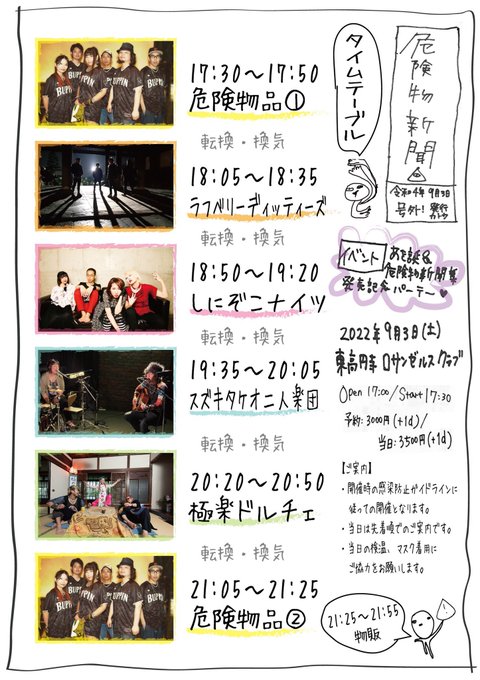 危険物新聞
令和4年9月3日
号外!
タイムテーブル
17:30〜17:50
危険物品①
転換・換気
18:05〜18:35
ラフベリーディッティーズ
転換・換気
18:50〜19:20
しにぞこナイツ
転換・換気
19:35〜20:05
スズキタケオ二人楽団
転換・換気
20:20〜20:50
極楽ドルチェ
転換・換気
21:05〜21:25
危険物品②
イベント
危険物新聞
発売記念パーテー♥
2022年9月3日(土)
東高円寺ロサンゼルスクラブ
Open 17:00/Start 17:30
予約:3000円(+1d)/
当日:3500円(+1d)
【ご案内】
・開催時の感染防止ガイドラインに
従っての開催となります。
・当日は先着順でのご案内です。
・当日の検温、マスク着用に
ご協力をお願いします。
21:25〜21:55
物販
BUPPIN
BUPPIN